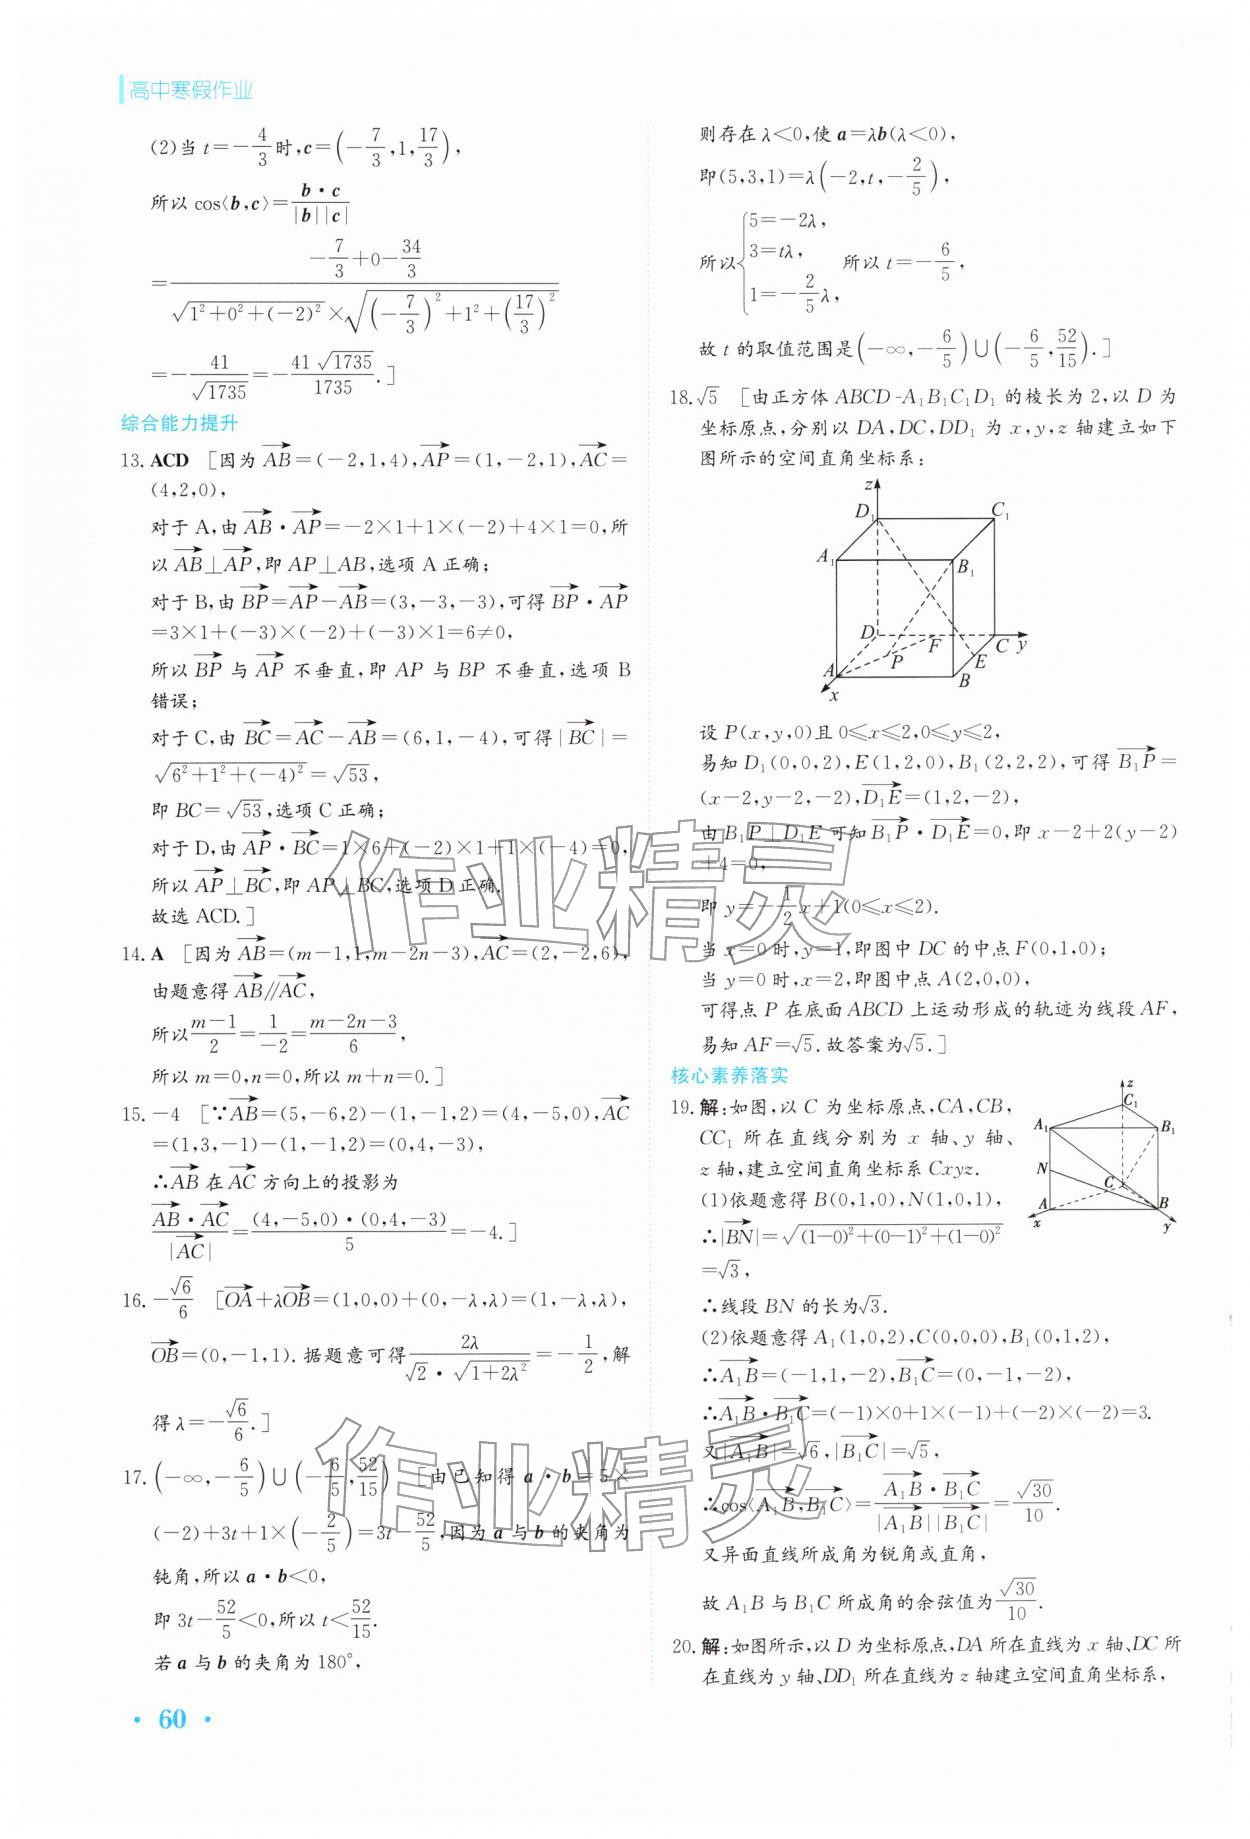 高中寒假作业
(2)当 t=-4/3 时,c=(-7/3,1,17/3),
所以 cos⟨b,c⟩=b·c/|b||c|
=(-7/3+0-34/3)/(√(1²+0²+(-2)²)×√((-7/3)²+1²+(17/3)²))
=-41/√1735=-41√1735/1735.]
综合能力提升
13. ACD [因为 AB→=(-2,1,4),AP→=(1,-2,1),AC→=
(4,2,0),
对于 A,由 AB→·AP→=-2×1+1×(-2)+4×1=0,所
以 AB→⊥AP→,即 AP⊥AB,选项 A 正确;
对于 B,由 BP→=AP→-AB→=(3,-3,-3),可得 BP→·AP→
=3×1+(-3)×(-2)+(-3)×1=6≠0,
所以 BP→ 与 AP→ 不垂直,即 AP 与 BP 不垂直,选项 B
错误;
对于 C,由 BC→=AC→-AB→=(6,1,-4),可得|BC→|=
√(6²+1²+(-4)²)=√53,
即 BC=√53,选项 C 正确;
对于 D,由 AP→·BC→=1×6+(-2)×1+1×(-4)=0,
所以 AP→⊥BC→,即 AP⊥BC,选项 D 正确.
故选 ACD.]
14. A [因为 AB→=(m-1,1,m-2n-3),AC→=(2,-2,6),
由题意得 AB→∥AC→,
所以 (m-1)/2=1/-2=(m-2n-3)/6,
所以 m=0,n=0,所以 m+n=0.]
15. -4 [∵AB→=(5,-6,2)-(1,-1,2)=(4,-5,0),AC→
=(1,3,-1)-(1,-1,2)=(0,4,-3),
∴AB→ 在 AC→ 方向上的投影为
AB→·AC→/|AC→|=(4,-5,0)·(0,4,-3)/5=-4.]
16. -√6/6 [OA→+λOB→=(1,0,0)+(0,-λ,λ)=(1,-λ,λ),
OB→=(0,-1,1).据题意可得 2λ/(√2·√(1+2λ²))=-1/2,解
得 λ=-√6/6.]
17. (-∞,-6/5)∪(-6/5,52/15) [由已知得 a·b=5×
(-2)+3t+1×(-2/5)=3t-52/5,因为 a 与 b 的夹角为
钝角,所以 a·b<0,
即 3t-52/5<0,所以 t<52/15.
若 a 与 b 的夹角为 180°,
· 60 ·
则存在 λ<0,使 a=λb(λ<0),
即(5,3,1)=λ(-2,t,-2/5),
所以{5=-2λ, 3=tλ, 1=-2/5λ, 所以 t=-6/5,
故 t 的取值范围是(-∞,-6/5)∪(-6/5,52/15).]
18. √5 [由正方体 ABCD-A₁B₁C₁D₁ 的棱长为 2,以 D 为
坐标原点,分别以 DA,DC,DD₁ 为 x,y,z 轴建立如下
图所示的空间直角坐标系:
z
D₁
C₁
A₁
B₁
D
F
C
y
P
E
A
B
x
设 P(x,y,0)且 0≤x≤2,0≤y≤2,
易知 D₁(0,0,2),E(1,2,0),B₁(2,2,2),可得 B₁P→=
(x-2,y-2,-2),D₁E→=(1,2,-2),
由 B₁P⊥D₁E 可知 B₁P→·D₁E→=0,即 x-2+2(y-2)
+4=0,
即 y=-1/2x+1(0≤x≤2).
当 x=0 时,y=1,即图中 DC 的中点 F(0,1,0);
当 y=0 时,x=2,即图中点 A(2,0,0),
可得点 P 在底面 ABCD 上运动形成的轨迹为线段 AF,
易知 AF=√5.故答案为√5.]
核心素养落实
19. 解:如图,以 C 为坐标原点,CA,CB,
CC₁ 所在直线分别为 x 轴、y 轴、
z 轴,建立空间直角坐标系 Cxyz.
(1)依题意得 B(0,1,0),N(1,0,1),
∴|BN→|=√((1-0)²+(0-1)²+(1-0)²)
=√3,
∴线段 BN 的长为√3.
z
C₁
A₁
B₁
N
C
A
B
x
y
(2)依题意得 A₁(1,0,2),C(0,0,0),B₁(0,1,2),
∴A₁B→=(-1,1,-2),B₁C→=(0,-1,-2),
∴A₁B→·B₁C→=(-1)×0+1×(-1)+(-2)×(-2)=3.
又|A₁B→|=√6,|B₁C→|=√5,
∴cos⟨A₁B→,B₁C→⟩=A₁B→·B₁C→/|A₁B→||B₁C→|=√30/10.
又异面直线所成角为锐角或直角,
故 A₁B 与 B₁C 所成角的余弦值为√30/10.
20. 解:如图所示,以 D 为坐标原点,DA 所在直线为 x 轴、DC 所
在直线为 y 轴、DD₁ 所在直线为 z 轴建立空间直角坐标系,
作业精灵
作业精灵